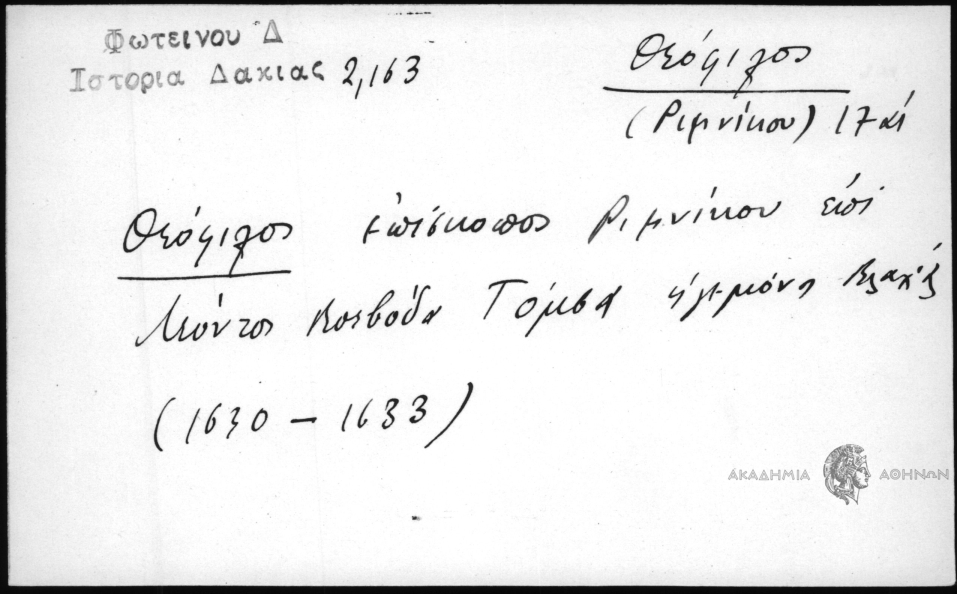 Φωτεινου Δ
Ιστορια Δακιας 2,163
Θεόφιλος
(Ριμνίκου) 17 αἰ
Θεόφιλος ἐπίσκοπος Ριμνίκου ἐπί
Λέοντος Βοεβόδα Τόμσα ἡγεμόνος Βλαχίας
(1630 – 1633)
ΑΚΑΔΗΜΙΑ ΑΘΗΝΩΝ